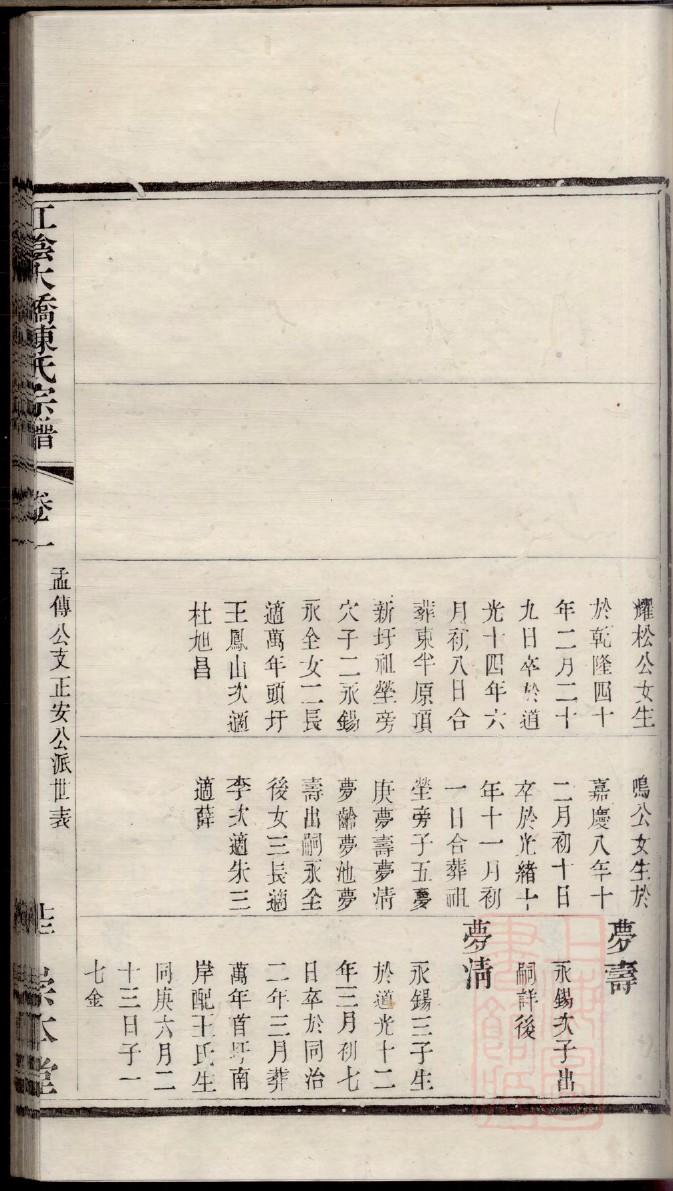 耀松公女生
於乾隆四十
年二月二十
九日卒於道
光十四年六
月初八日合
葬東半原頂
新圩祖塋旁
穴子二永錫
永全女二長
適萬年頭圩
王鳳山次適
杜旭昌
鳴公女生於
嘉慶八年十
二月初十日
卒於光緒十
年十一月初
一日合葬祖
塋旁子五夢
庚夢壽夢清
夢齡夢池夢
壽出嗣永全
後女三長適
李次適朱三
適薛
夢壽
永錫次子出
嗣詳後
夢清
永錫三子生
於道光十二
年三月初七
日卒於同治
二年三月葬
萬年首圩南
岸配王氏生
同庚六月二
十三日子一
七金
江陰大橋陳氏宗譜
卷一
孟傳公支正安公派世表
崇本堂